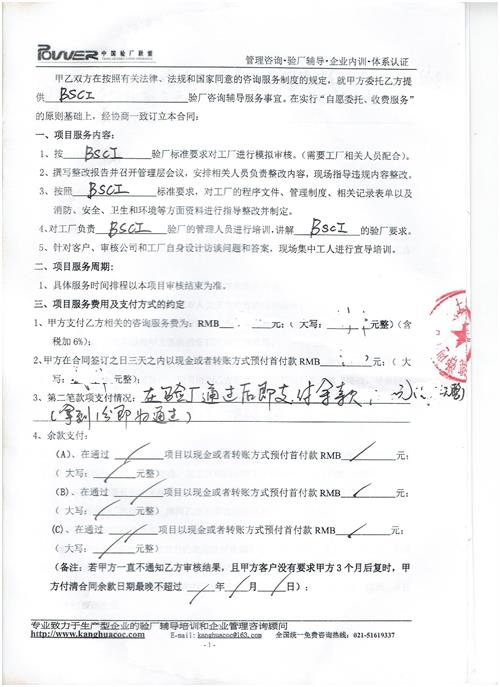 POWER 中国验厂联盟
管理咨询·验厂辅导·企业内训·体系认证
甲乙双方在按照有关法律、法规和国家同意的咨询服务制度的规定，就甲方委托乙方提
供 BSCI 验厂咨询辅导服务事宜。在实行“自愿委托、收费服务”
的原则基础上，经协商一致订立本合同：
一、项目服务内容：
1、按 BSCI 验厂标准要求对工厂进行模拟审核。（需要工厂相关人员配合）。
2、撰写整改报告并召开管理层会议，安排相关人员负责整改内容，现场指导违规内容整改。
3、按照 BSCI 标准要求，对工厂的程序文件、管理制度、相关记录表单以及
消防、安全、卫生和环境等方面资料进行指导整改并制定。
4.对工厂负责 BSCI 验厂的管理人员进行培训，讲解 BSCI 的验厂要求。
5、针对客户、审核公司和工厂自身设计访谈问题和答案，现场集中工人进行宣导培训。
二、项目服务周期：
1、具体服务时间排程以本项目审核结束为准。
三、项目服务费用及支付方式的约定
1、甲方支付乙方相关的咨询服务费为：RMB 元；（ 大写： 元整）（含
税加 6%）；
2、甲方在合同签订之日三天之内以现金或者转账方式预付首付款 RMB 元；（ 大
写： 元整）；
3、第二笔款项支付情况：在验厂通过后即支付余款，
（拿到 即为通过）
4、余款支付：
（A）、在通过 项目以现金或者转账方式预付首付款 RMB 元；
（ 大写： 元整）
（B）、在通过 项目以现金或者转账方式预付首付款 RMB 元；
（ 大写： 元整）
（C）、在通过 项目以现金或者转账方式预付首付款 RMB 元；
（ 大写： 元整）
（备注：若甲方一直不通知乙方审核结果，且甲方客户没有要求甲方 3 个月后复时，甲
方付清合同余款日期最晚不超过 年 月 日）；
专业致力于生产型企业的验厂辅导培训和企业管理咨询顾问
http://www.kanghuacoc.com E-mail: kanghuacoc@163.com 全国统一免费咨询热线：021-51619337
- 1 -